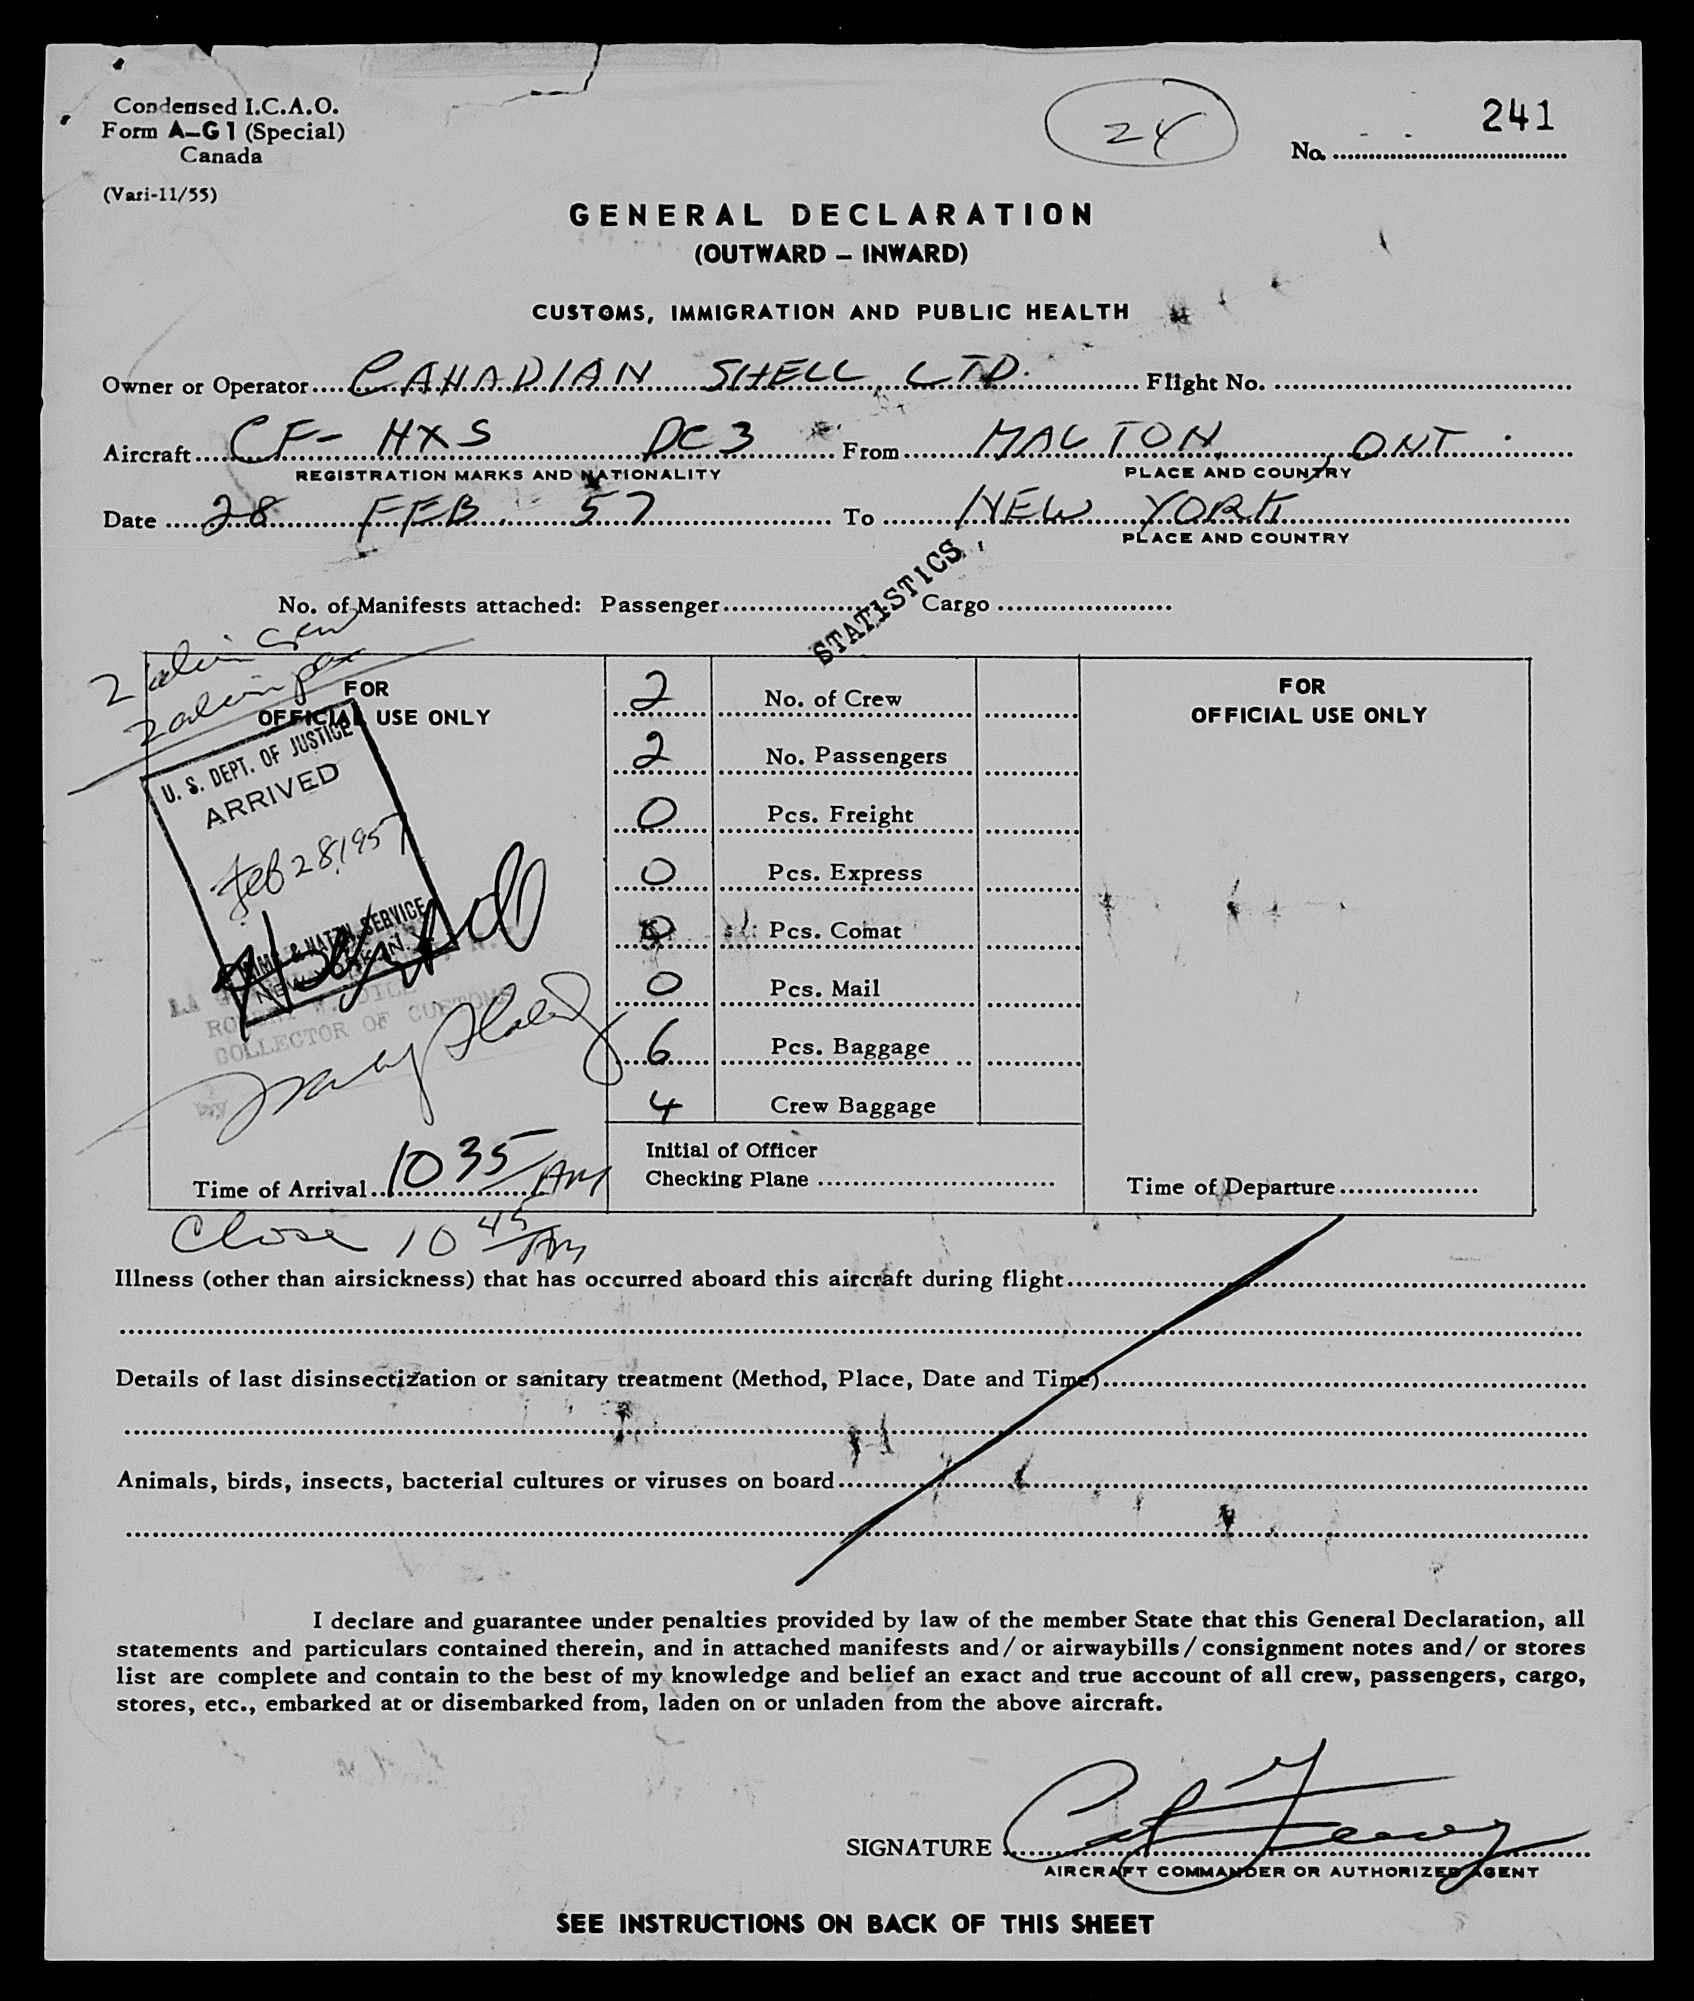 Condensed I.C.A.O.
Form A-G1 (Special)
Canada
(Vari-11/55)
24
No. 241
GENERAL DECLARATION
(OUTWARD – INWARD)
CUSTOMS, IMMIGRATION AND PUBLIC HEALTH
Owner or Operator CANADIAN SHELL, LTD. Flight No.
Aircraft CF- HXS DC3 From MALTON, ONT.
REGISTRATION MARKS AND NATIONALITY PLACE AND COUNTRY
Date 28 FEB 57 To NEW YORK
PLACE AND COUNTRY
STATISTICS
No. of Manifests attached: Passenger Cargo
2 alien crew
2 alien pax
FOR
OFFICIAL USE ONLY
U. S. DEPT. OF JUSTICE
ARRIVED
Feb 28, 1957
IMM. & NATZN. SERVICE
NEW YORK, N.
COLLECTOR OF CUSTOMS
by
Time of Arrival 10 35 AM
2 No. of Crew
2 No. Passengers
0 Pcs. Freight
0 Pcs. Express
0 Pcs. Comat
0 Pcs. Mail
6 Pcs. Baggage
4 Crew Baggage
Initial of Officer
Checking Plane
FOR
OFFICIAL USE ONLY
Time of Departure
Close 10 45 AM
Illness (other than airsickness) that has occurred aboard this aircraft during flight
Details of last disinsectization or sanitary treatment (Method, Place, Date and Time)
Animals, birds, insects, bacterial cultures or viruses on board
I declare and guarantee under penalties provided by law of the member State that this General Declaration, all
statements and particulars contained therein, and in attached manifests and/or airwaybills/consignment notes and/or stores
list are complete and contain to the best of my knowledge and belief an exact and true account of all crew, passengers, cargo,
stores, etc., embarked at or disembarked from, laden on or unladen from the above aircraft.
SIGNATURE
AIRCRAFT COMMANDER OR AUTHORIZED AGENT
SEE INSTRUCTIONS ON BACK OF THIS SHEET